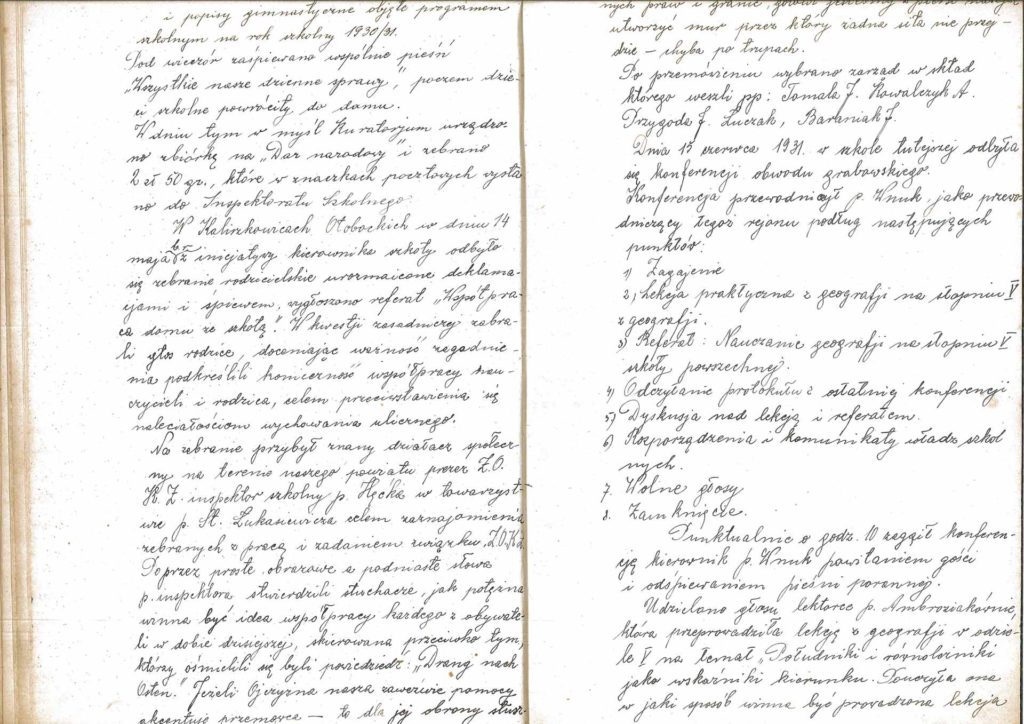 i popisy gimnastyczne objęte programem
szkolnym na rok szkolny 1930/31.
Pod wieczór zaśpiewano wspólnie pieśń
„Wszystkie nasze dzienne sprawy", poczem dzie-
ci szkolne powróciły do domu.
W dniu tym w myśl Kuratorjum urządzo-
no zbiórkę na „Dar narodowy" i zebrano
2 zł 50 gr., które w znaczkach pocztowych wysła
no do Inspektoratu Szkolnego.
W Kaliszkowicach Ołobockich w dniu 14
maja br z inicjatywy kierownika szkoły odbyło
się zebranie rodzicielskie urozmaicone deklama-
cjami i śpiewem, wygłoszono referat „Współpra-
ca domu ze szkołą". W kwestji zasadniczej zabra-
li głos rodzice, doceniając ważność zagadnie-
nia podkreślili konieczność współpracy nau-
czycieli i rodzica, celem przeciwstawienia się
naleciałościom wychowania ulicznego.
Na zebranie przybył znany działacz społecz-
ny na terenie naszego powiatu prezes Z.O.
K.Z. inspektor szkolny p. Hącka w towarzyst-
wie p. St. Łukasiewicza celem zaznajomienia
zebranych z pracą i zadaniem związku Z.O.K.Z.
Poprzez proste obrazowe a podniosłe słowa
p. inspektora stwierdzili słuchacze, jak potężna
winna być idea współpracy każdego z obywate-
li w dobie dzisiejszej, skierowana przeciwko tym,
którzy ośmielili się byli powiedzieć: „Drang nach
Osten." Jeżeli Ojczyzna nasza zawezwie pomocy
akcentuje przemowca – to dla jej obrony słusz-
nych praw i granic,
utworzyć mur przez który żadna siła nie przej-
dzie – chyba po trupach.
Po przemówieniu wybrano zarząd w skład
którego weszli pp: Tomala J. Kowalczyk A.
Przygoda J. Łuczak, Baraniak J.
Dnia 15 czerwca 1931. w szkole tutejszej odbyła
się konferencji obwodu grabowskiego.
Konferencja przewodniczył p. Wnuk jako przewo
dniczący tegoż rejonu podług następujących
punktów:
1) Zagajenie
2, Lekcja praktyczna z geografji na stopniu V
z geografji.
3) Referat: Nauczanie geografji na stopniu V
szkoły powszechnej.
4) Odczytanie protokułu z ostatniej konferencji
5) Dyskusja nad lekcją i referatem.
6) Rozporządzenia i komunikaty władz szkol
nych.
7. Wolne głosy
8. Zamknięcie.
Punktualnie o godz. 10 zagaił konferen-
cję kierownik p. Wnuk powitaniem gości
i odśpiewaniem pieśni porannej.
Udzielono głosu lektorce p. Ambroziakównie,
która przeprowadziła lekcję z geografji w oddzia-
le V na temat „Południki i równoleżniki
jako wskaźniki kierunku. Pouczyła ona
w jaki sposób winna być prowadzona lekcja